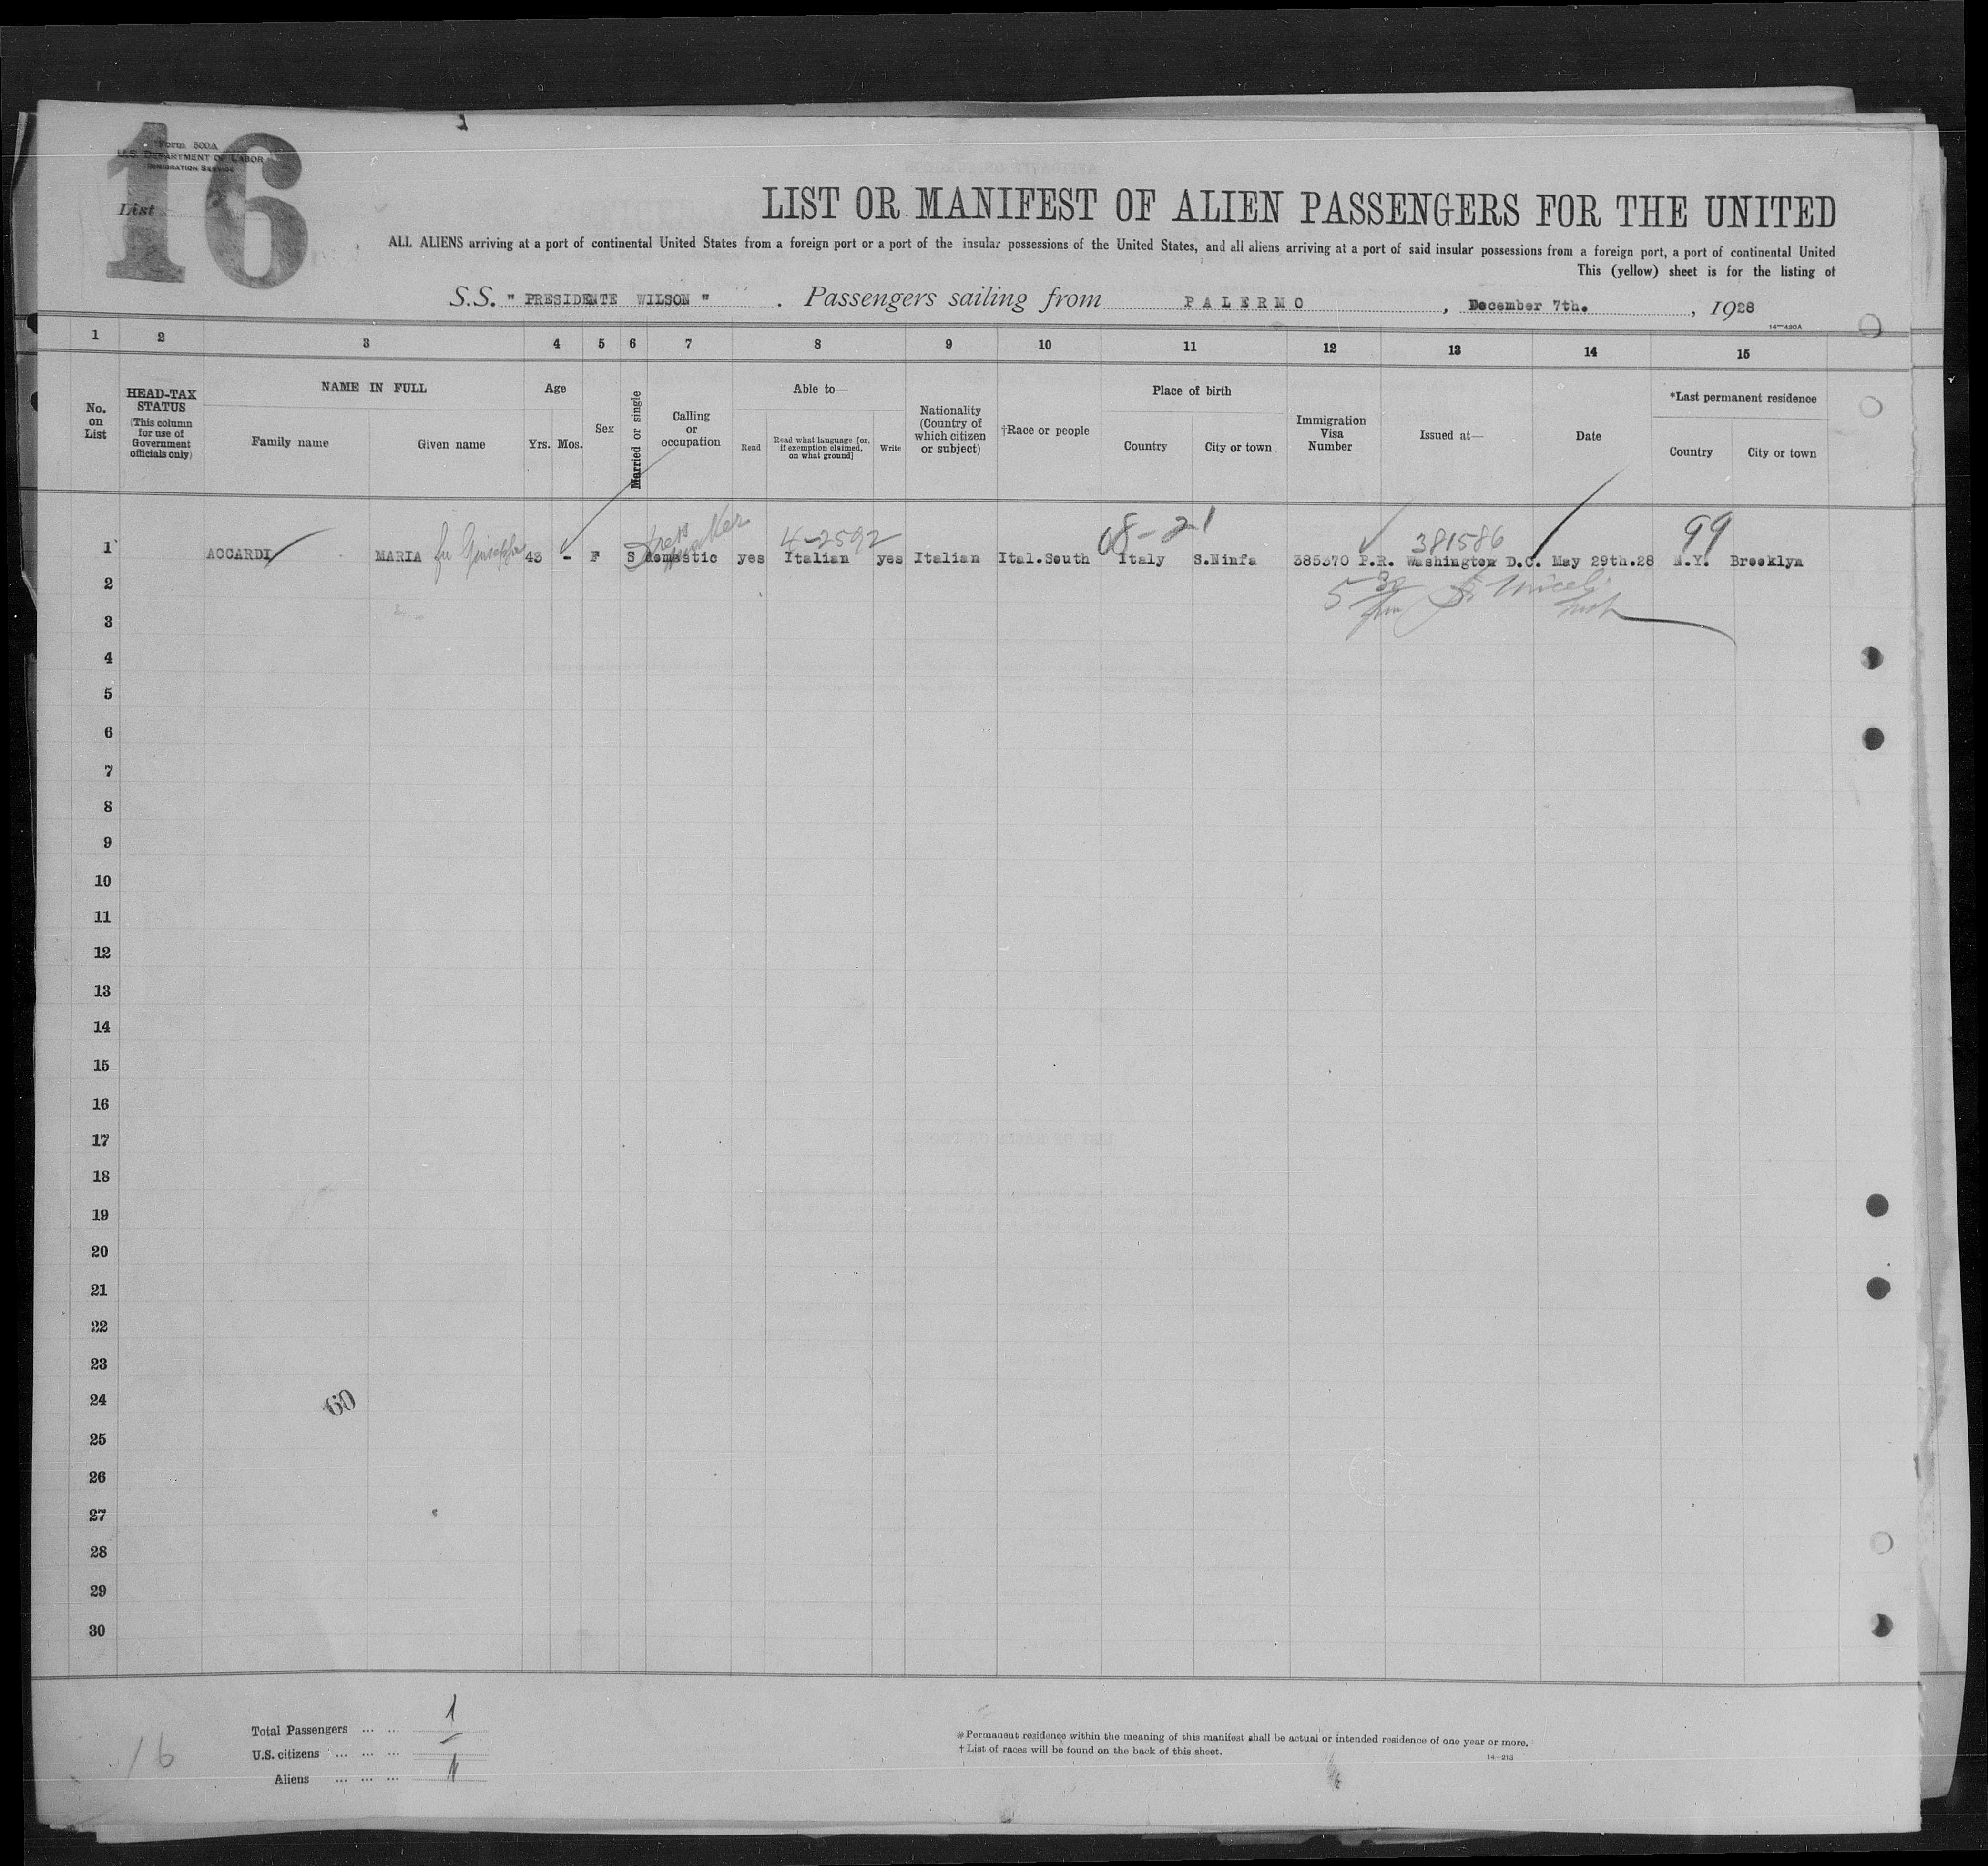 16
Form 500A
U.S. DEPARTMENT OF LABOR
IMMIGRATION SERVICE
List
LIST OR MANIFEST OF ALIEN PASSENGERS FOR THE UNITED
ALL ALIENS arriving at a port of continental United States from a foreign port or a port of the insular possessions of the United States, and all aliens arriving at a port of said insular possessions from a foreign port, a port of continental United
This (yellow) sheet is for the listing of
S.S. " PRESIDENTE WILSON ". Passengers sailing from PALERMO, December 7th., 1928
14—430A
1 2 3 4 5 6 7 8 9 10 11 12 13 14 15
No. on List
HEAD-TAX STATUS (This column for use of Government officials only)
NAME IN FULL
Family name
Given name
Age
Yrs. Mos.
Sex
Married or single
Calling or occupation
Able to—
Read
Read what language [or, if exemption claimed, on what ground]
Write
Nationality (Country of which citizen or subject)
†Race or people
Place of birth
Country
City or town
Immigration Visa Number
Issued at—
Date
*Last permanent residence
Country
City or town
dress maker 4-2592 68-21 381586 99
1 ACCARDI MARIA fu Giuseppe 43 - F S domestic yes Italian yes Italian Ital.South Italy S.Ninfa 385370 P.R. Washington D.C. May 29th.28 N.Y. Brooklyn
2 5 30
3
4
5
6
7
8
9
10
11
12
13
14
15
16
17
18
19
20
21
22
23
24
60
25
26
27
28
29
30
16
Total Passengers ... ... 1
U.S. citizens ... ... ... -
Aliens ... ... ...
*Permanent residence within the meaning of this manifest shall be actual or intended residence of one year or more.
†List of races will be found on the back of this sheet.
14—213